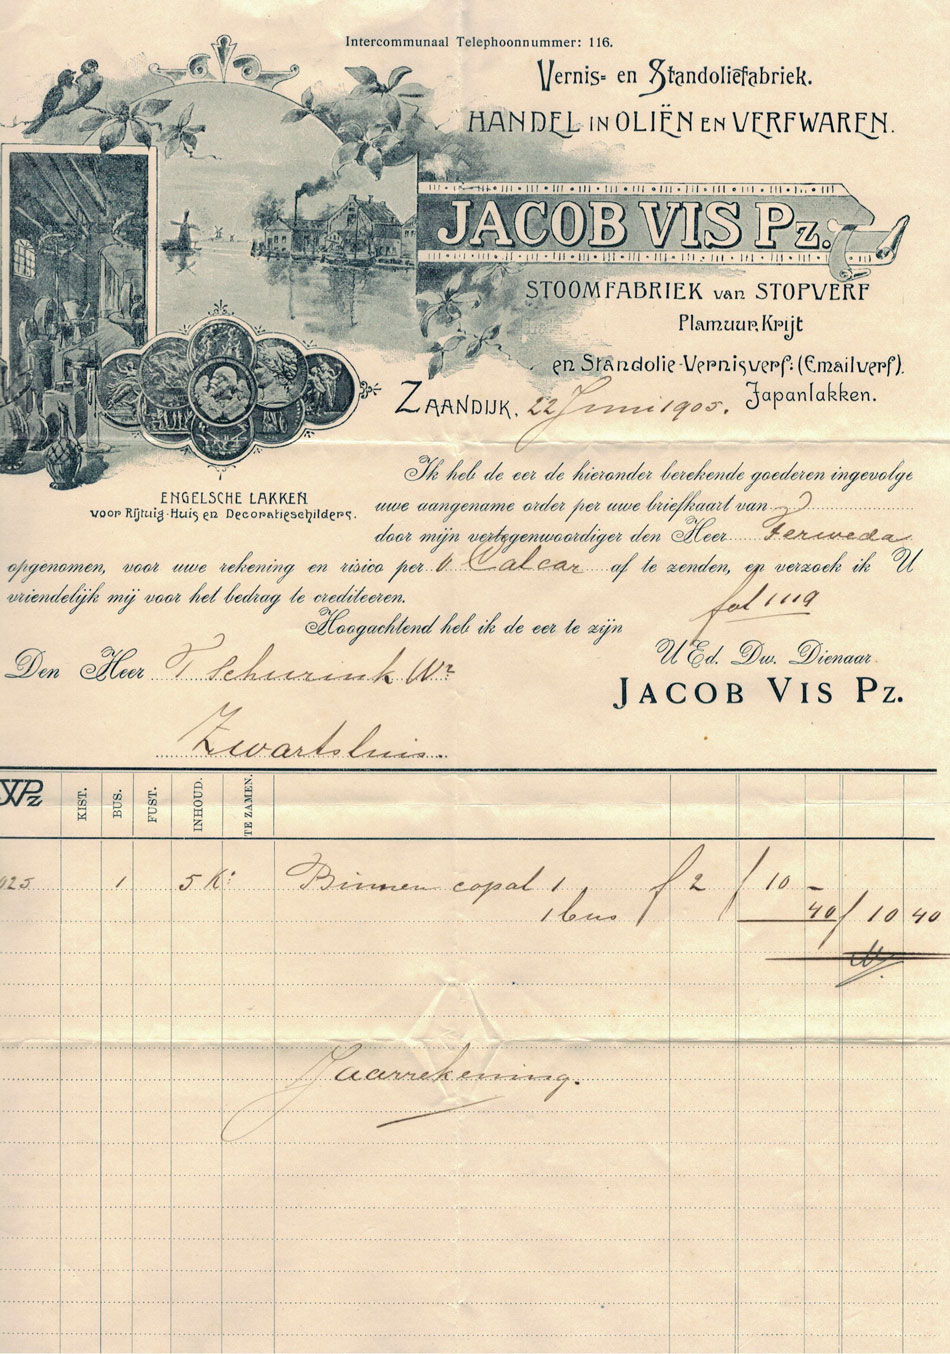 Intercommunaal Telephoonnummer: 116.
Vernis= en Standoliefabriek.
HANDEL IN OLIËN EN VERFWAREN.
JACOB VIS Pz.
STOOMFABRIEK van STOPVERF
Plamuur, Krijt
en Standolie-Vernisverf: (Emailverf).
Japanlakken.
ZAANDIJK, 22 Juni 1905.
ENGELSCHE LAKKEN
voor Rijtuig-Huis en Decoratieschilders.
Ik heb de eer de hieronder berekende goederen ingevolge
uwe aangename order per uwe briefkaart van
door mijn vertegenwoordiger den Heer Ferweda
opgenomen, voor uwe rekening en risico per v. Calcar af te zenden, en verzoek ik U
vriendelijk mij voor het bedrag te crediteeren.
fol 1119
Hoogachtend heb ik de eer te zijn
U Ed. Dw. Dienaar
JACOB VIS Pz.
Den Heer T Schurink Wz
Zwartsluis.
KIST. BUS. FUST. INHOUD. TE ZAMEN.
1 5 K: Binnen copal 1 f 2 f 10 -
1 bus 40 f 10 40
Jaarrekening.